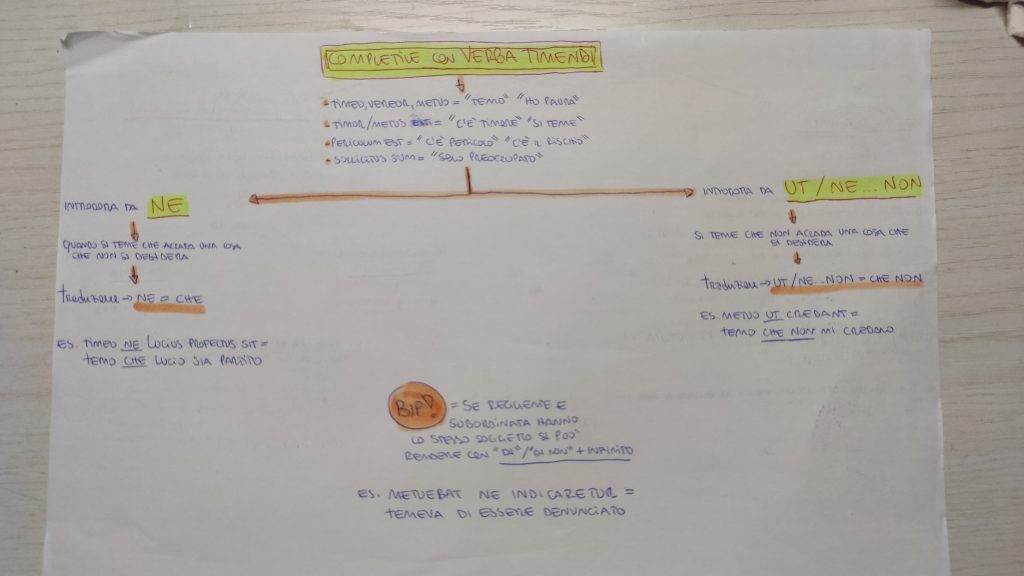 COMPLETIVE CON VERBA TIMENDI
• TIMEO, VEREOR, METUO = "TEMO" "HO PAURA"
• TIMOR/METUS EST = "C'È TIMORE" "SI TEME"
• PERICULUM EST = "C'È PERICOLO" "C'È IL RISCHIO"
• SOLLICITUS SUM = "SONO PREOCCUPATO"
INTRODOTTA DA NE
QUANDO SI TEME CHE ACCADA UNA COSA
CHE NON SI DESIDERA
traduzione → NE = CHE
ES. TIMEO NE LUCIUS PROFECTUS SIT =
TEMO CHE LUCIO SIA PARTITO
INTRODOTTA DA UT / NE... NON
SI TEME CHE NON ACCADA UNA COSA CHE
SI DESIDERA
traduzione → UT/NE...NON = CHE NON
ES. METUO UT CREDANT =
TEMO CHE NON MI CREDANO
BIP! = SE REGGENTE E
SUBORDINATA HANNO
LO STESSO SOGGETTO SI PUÒ
RENDERE CON "DI"/"DI NON" + INFINITO
ES. METUEBAT NE INDICARETUR =
TEMEVA DI ESSERE DENUNCIATO